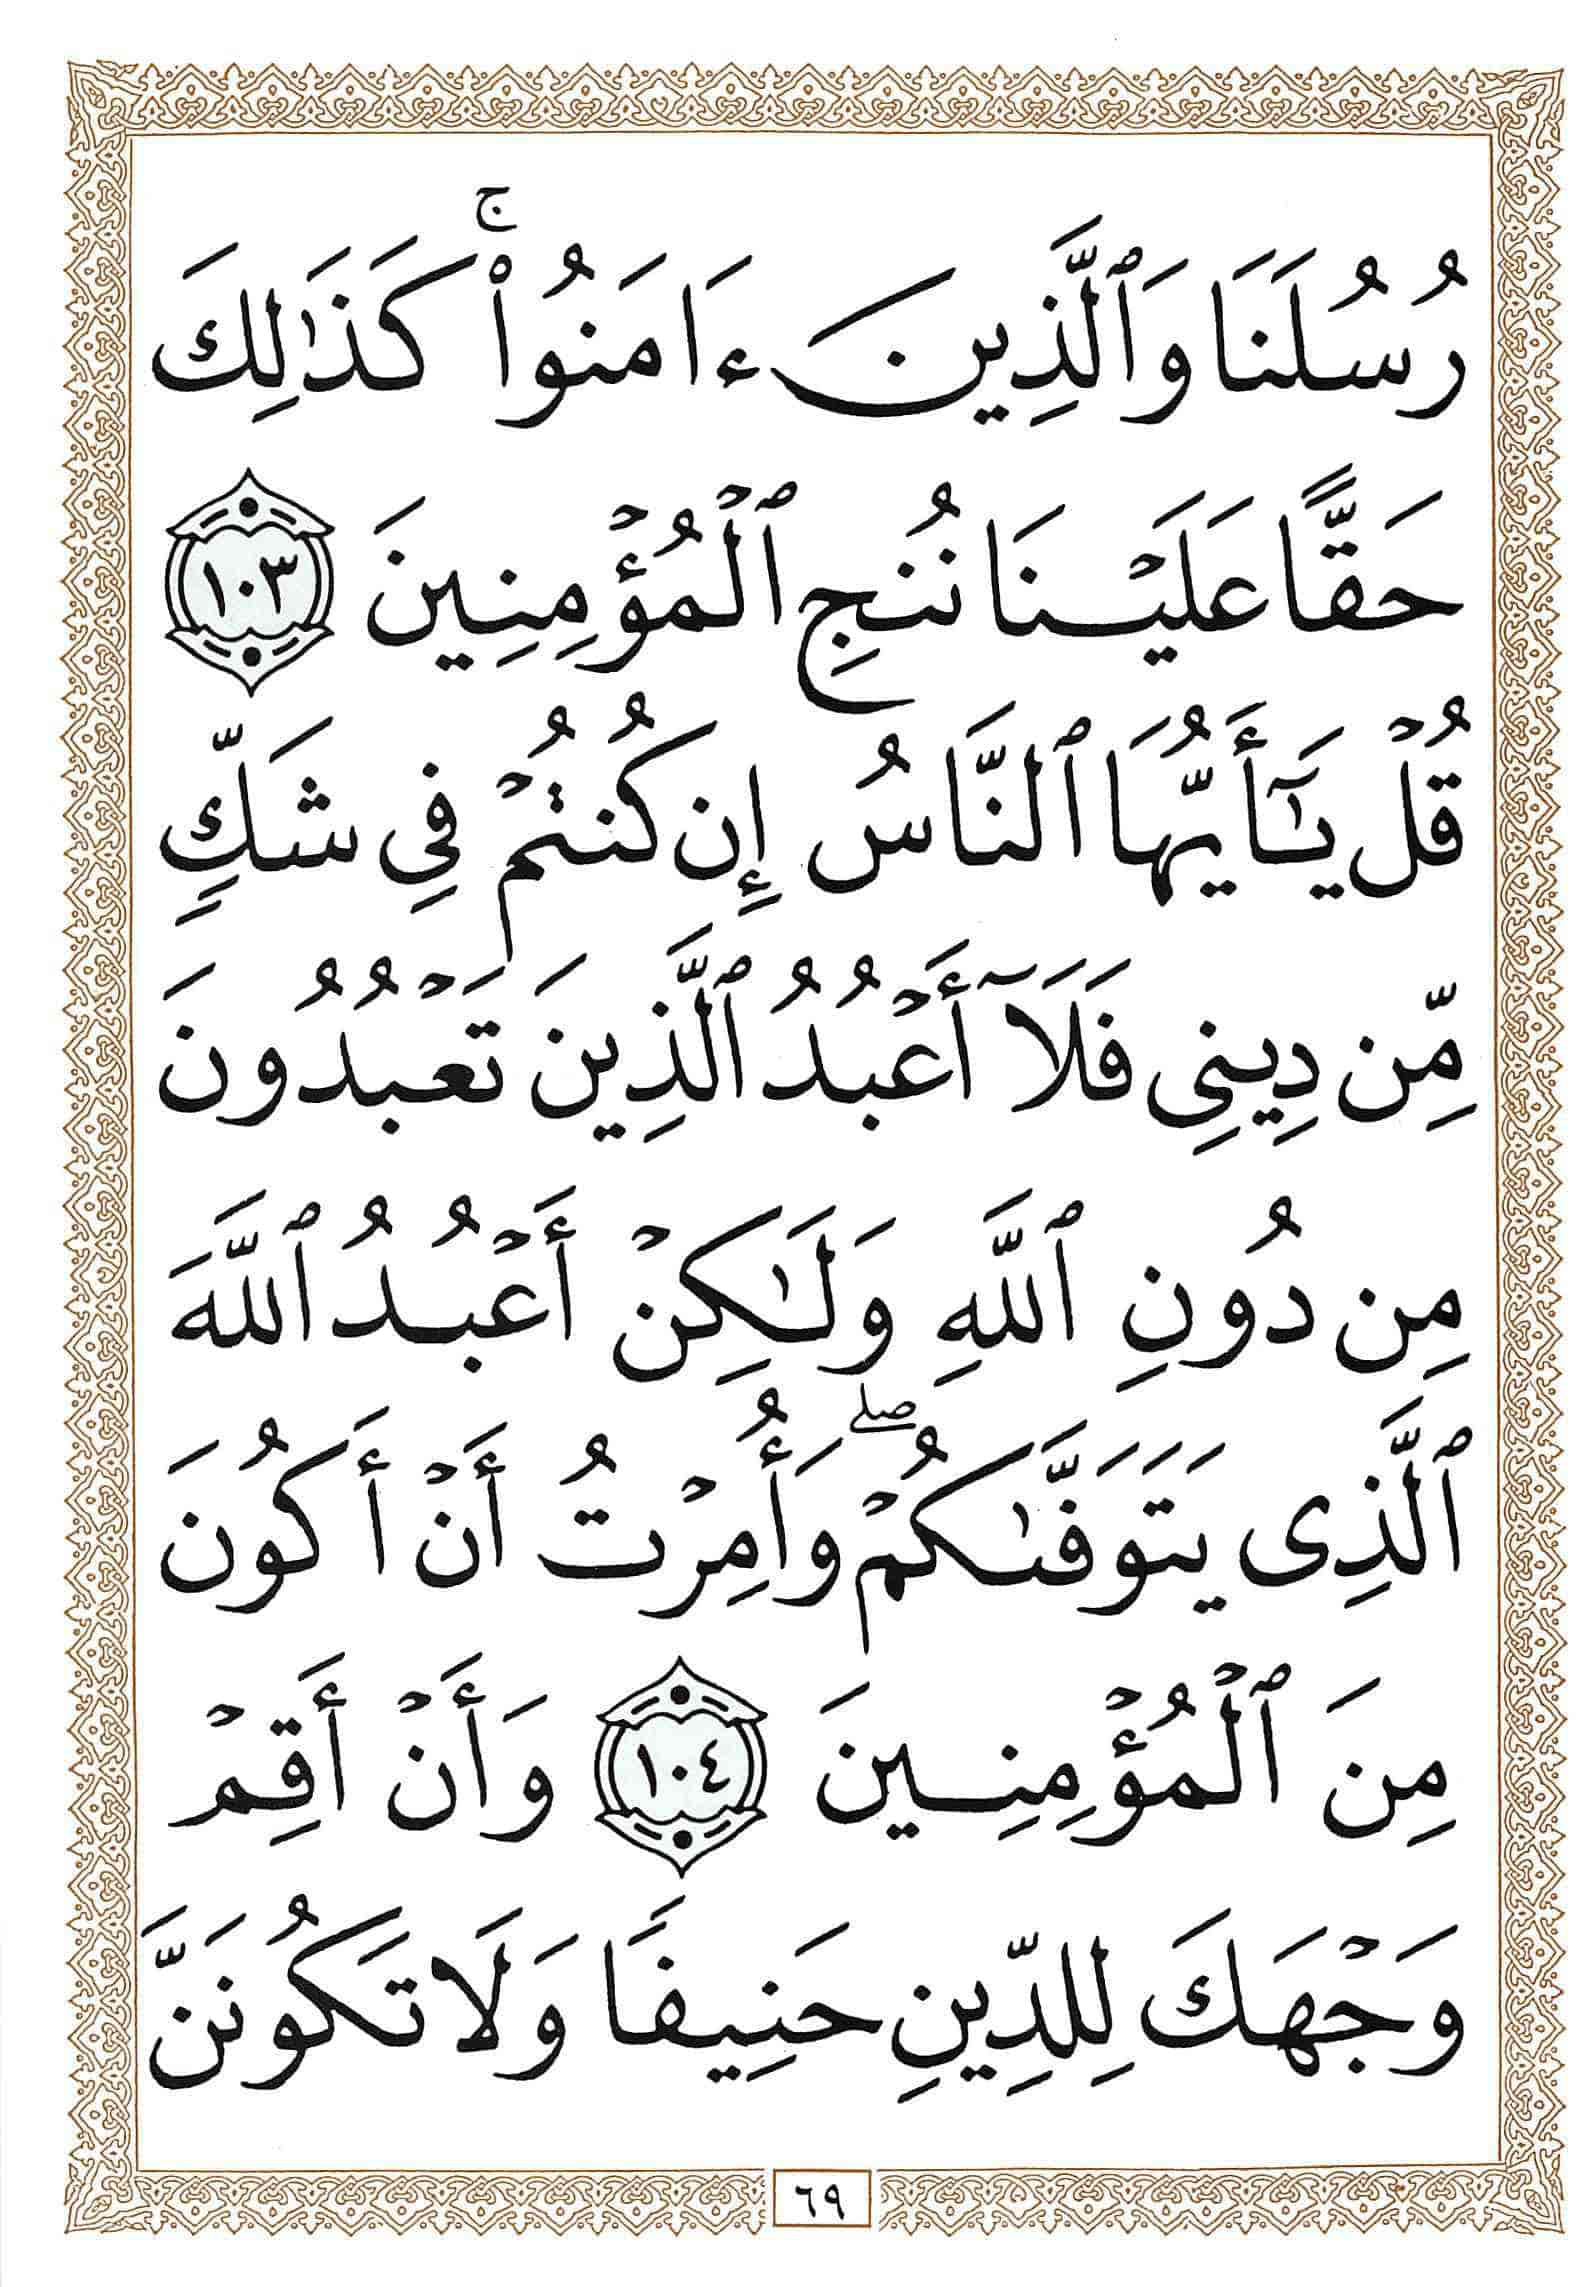 رُسُلَنَا وَٱلَّذِينَ ءَامَنُوا۟ ۚ كَذَٰلِكَ
حَقًّا عَلَيْنَا نُنجِ ٱلْمُؤْمِنِينَ ١٠٣
قُلْ يَـٰٓأَيُّهَا ٱلنَّاسُ إِن كُنتُمْ فِى شَكٍّ
مِّن دِينِى فَلَآ أَعْبُدُ ٱلَّذِينَ تَعْبُدُونَ
مِن دُونِ ٱللَّهِ وَلَـٰكِنْ أَعْبُدُ ٱللَّهَ
ٱلَّذِى يَتَوَفَّىٰكُمْ ۖ وَأُمِرْتُ أَنْ أَكُونَ
مِنَ ٱلْمُؤْمِنِينَ ١٠٤ وَأَنْ أَقِمْ
وَجْهَكَ لِلدِّينِ حَنِيفًا وَلَا تَكُونَنَّ
٦٩